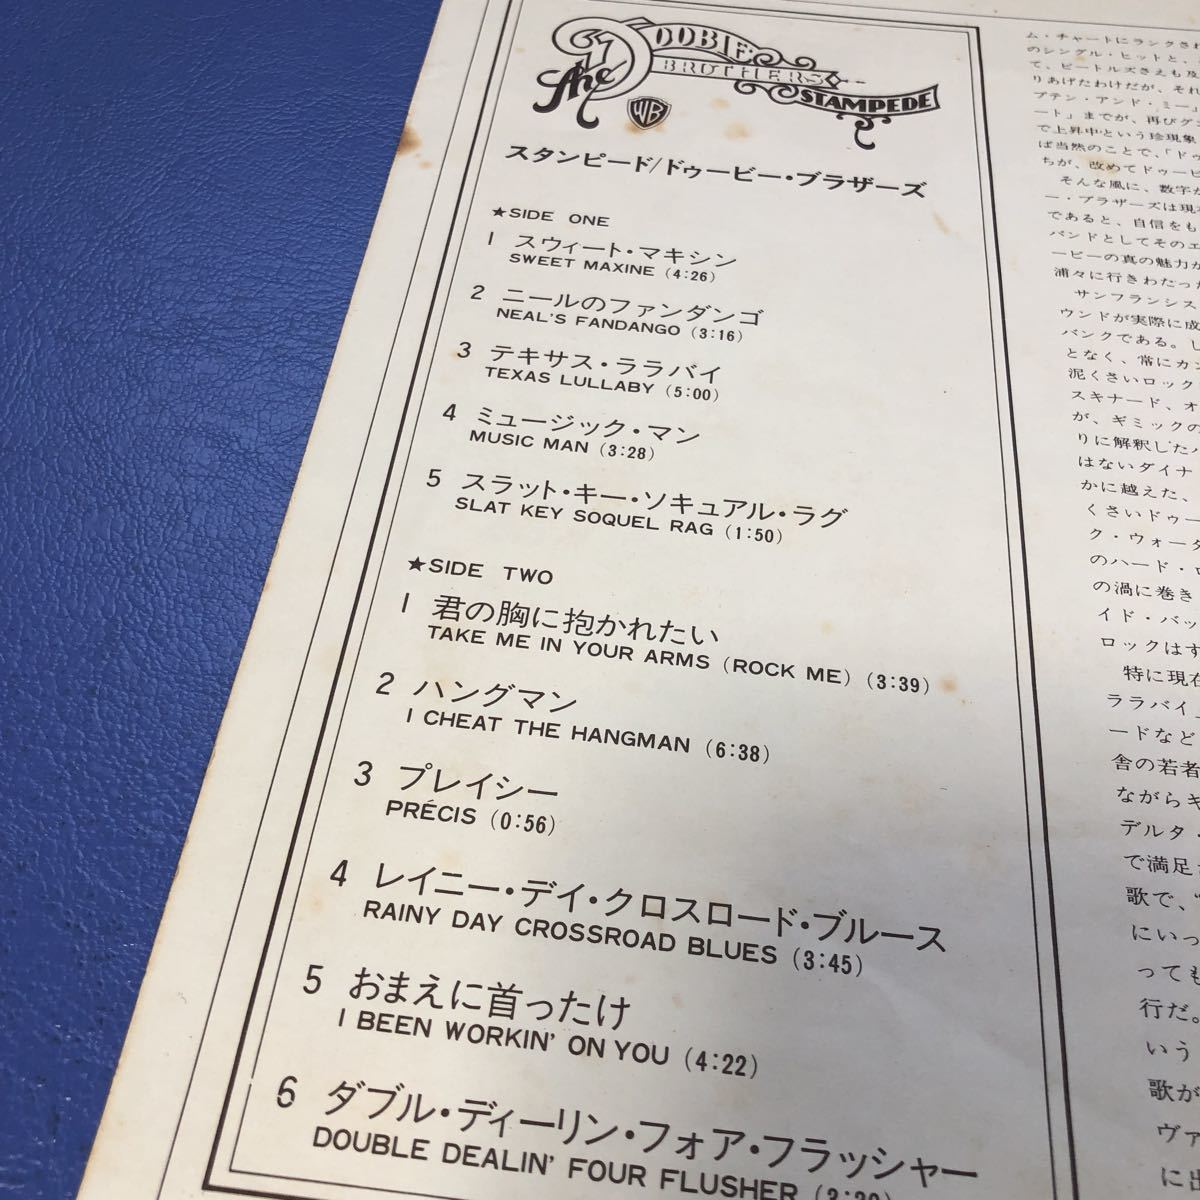 The DOOBIE BROTHERS
STAMPEDE
WB
スタンピード/ドゥービー・ブラザーズ
★SIDE ONE
1 スウィート・マキシン
SWEET MAXINE (4:26)
2 ニールのファンダンゴ
NEAL'S FANDANGO (3:16)
3 テキサス・ララバイ
TEXAS LULLABY (5:00)
4 ミュージック・マン
MUSIC MAN (3:28)
5 スラット・キー・ソキュアル・ラグ
SLAT KEY SOQUEL RAG (1:50)
★SIDE TWO
1 君の胸に抱かれたい
TAKE ME IN YOUR ARMS (ROCK ME) (3:39)
2 ハングマン
I CHEAT THE HANGMAN (6:38)
3 プレイシー
PRÉCIS (0:56)
4 レイニー・デイ・クロスロード・ブルース
RAINY DAY CROSSROAD BLUES (3:45)
5 おまえに首ったけ
I BEEN WORKIN' ON YOU (4:22)
6 ダブル・ディーリン・フォア・フラッシャー
DOUBLE DEALIN' FOUR FLUSHER
ム・チャートにランクされ
のシングル・ヒットと、
て、ビートルズさえも及
りあげたわけだが、それ
プテン・アンド・ミー」
ート」までが、再びグ
で上昇中という珍現象
ば当然のことで、「ドゥ
ちが、改めてドゥービ
そんな風に、数字が
ー・ブラザーズは現
であると、自信をも
バンドとしてそのエ
ービーの真の魅力が
浦々に行きわたっ
サンフランシス
ウンドが実際に成
バンクである。し
となく、常にカン
泥くさいロック
スキナード、オ
が、ギミックの
りに解釈した
はないダイナ
かに越えた、
くさいドゥー
ク・ウォータ
のハード・ロ
の渦に巻き
イド・バッ
ロックはす
特に現在
ララバイ
ードなど
舎の若者
ながらギ
デルタ・
で満足
歌で、
にいっ
っても
行だ。
いう
歌が
ヴァ
に出